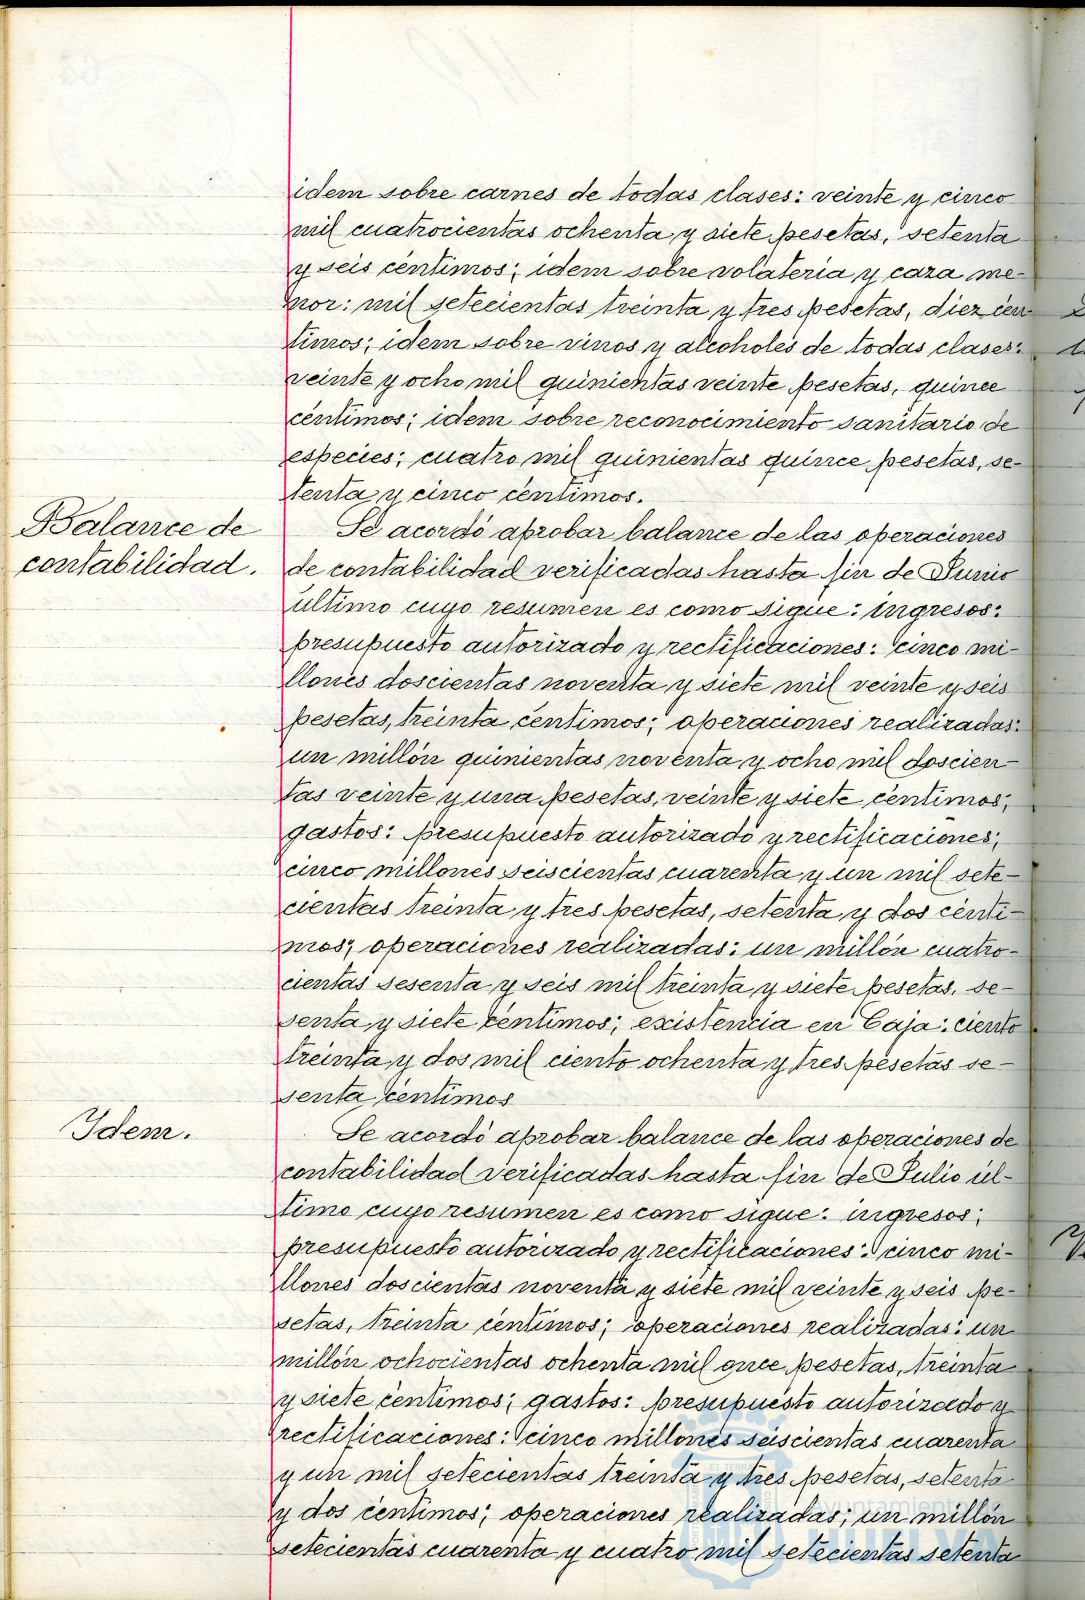 idem sobre carnes de todas clases: veinte y cinco
mil cuatrocientas ochenta y siete pesetas, setenta
y seis céntimos; idem sobre volateria y caza me-
nor: mil setecientas treinta y tres pesetas, diez cén-
timos; idem sobre vinos y alcoholes de todas clases:
veinte y ocho mil quinientas veinte pesetas, quince
céntimos; idem sobre reconocimiento sanitario de
especies; cuatro mil quinientas quince pesetas, se-
tenta y cinco céntimos.
Balance de
contabilidad.
Se acordó aprobar balance de las operaciones
de contabilidad verificadas hasta fin de Junio
último cuyo resumen es como sigue: ingresos:
presupuesto autorizado y rectificaciones: cinco mi-
llones doscientas noventa y siete mil veinte y seis
pesetas, treinta céntimos; operaciones realizadas:
un millón quinientas noventa y ocho mil doscien-
tas veinte y una pesetas, veinte y siete céntimos;
gastos: presupuesto autorizado y rectificaciones;
cinco millones seiscientas cuarenta y un mil sete-
cientas treinta y tres pesetas, setenta y dos cénti-
mos; operaciones realizadas: un millón cuatro-
cientas sesenta y seis mil treinta y siete pesetas, se-
senta y siete céntimos; existencia en Caja: ciento
treinta y dos mil ciento ochenta y tres pesetas se-
senta céntimos
Idem.
Se acordó aprobar balance de las operaciones de
contabilidad verificadas hasta fin de Julio úl-
timo cuyo resumen es como sigue: ingresos;
presupuesto autorizado y rectificaciones: cinco mi-
llones doscientas noventa y siete mil veinte y seis pe-
setas, treinta céntimos; operaciones realizadas: un
millón ochocientas ochenta mil once pesetas, treinta
y siete céntimos; gastos: presupuesto autorizado y
rectificaciones: cinco millones seiscientas cuarenta
y un mil setecientas treinta y tres pesetas, setenta
y dos céntimos; operaciones realizadas; un millón
setecientas cuarenta y cuatro mil setecientas setenta
Ayuntamiento
HUELVA